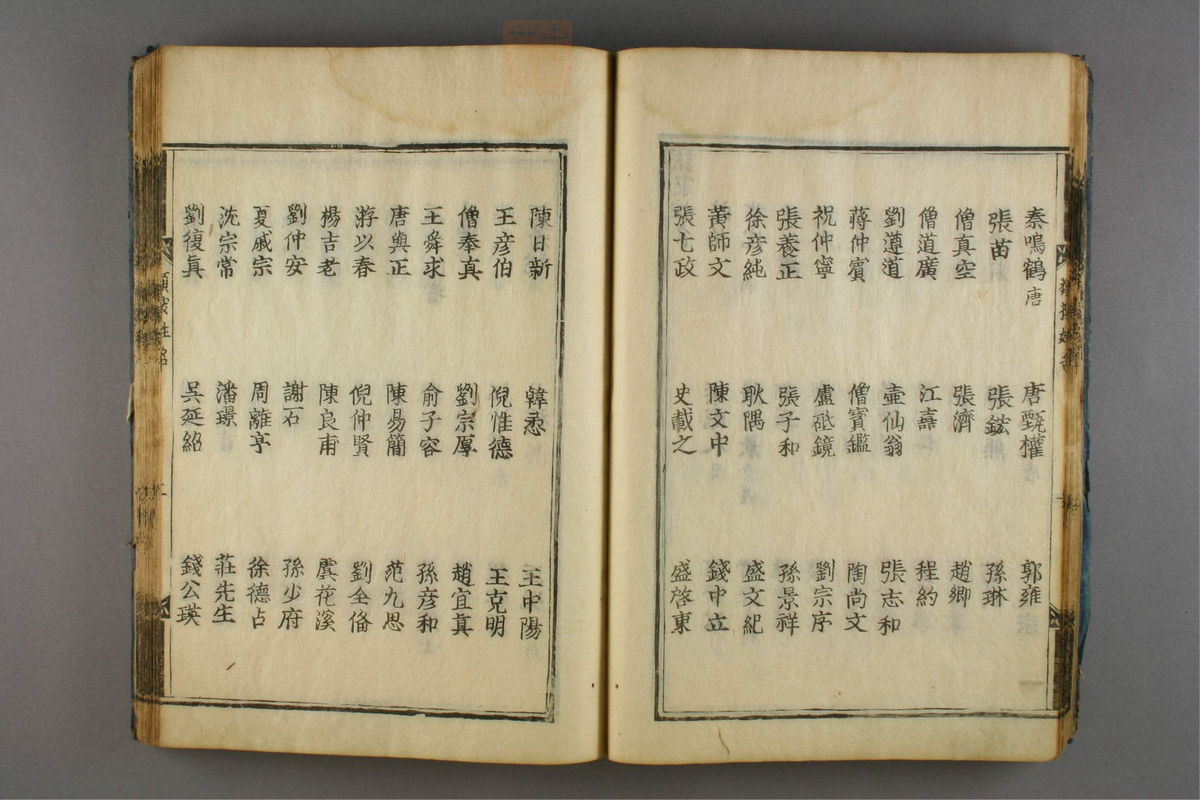 秦鳴鶴唐 唐甄權 郭雍
張苗 張鋐 孫琳
僧真空 張濟 趙卿
僧道廣 江嚞 程約
劉遵道 壷仙翁 張志和
蔣仲賓 僧寳鑑 陶尚文
祝仲寧 盧砥鏡 劉宗序
張養正 張子和 孫景祥
徐彦純 耿隅 盛文紀
黃師文 陳文中 錢中立
張七政 史載之 盛啓東
陳日新 韓悉 王中陽
王彦伯 倪惟德 王克明
僧奉真 劉宗厚 趙宜真
王舜求 俞子容 孫彦和
唐與正 陳易簡 范九思
游以春 倪仲賢 劉全俻
楊吉老 陳良甫 虞花溪
劉仲安 謝石 孫少府
夏戚宗 周離亨 徐德占
沈宗常 潘璟 莊先生
劉復眞 吳延紹 錢公瑛